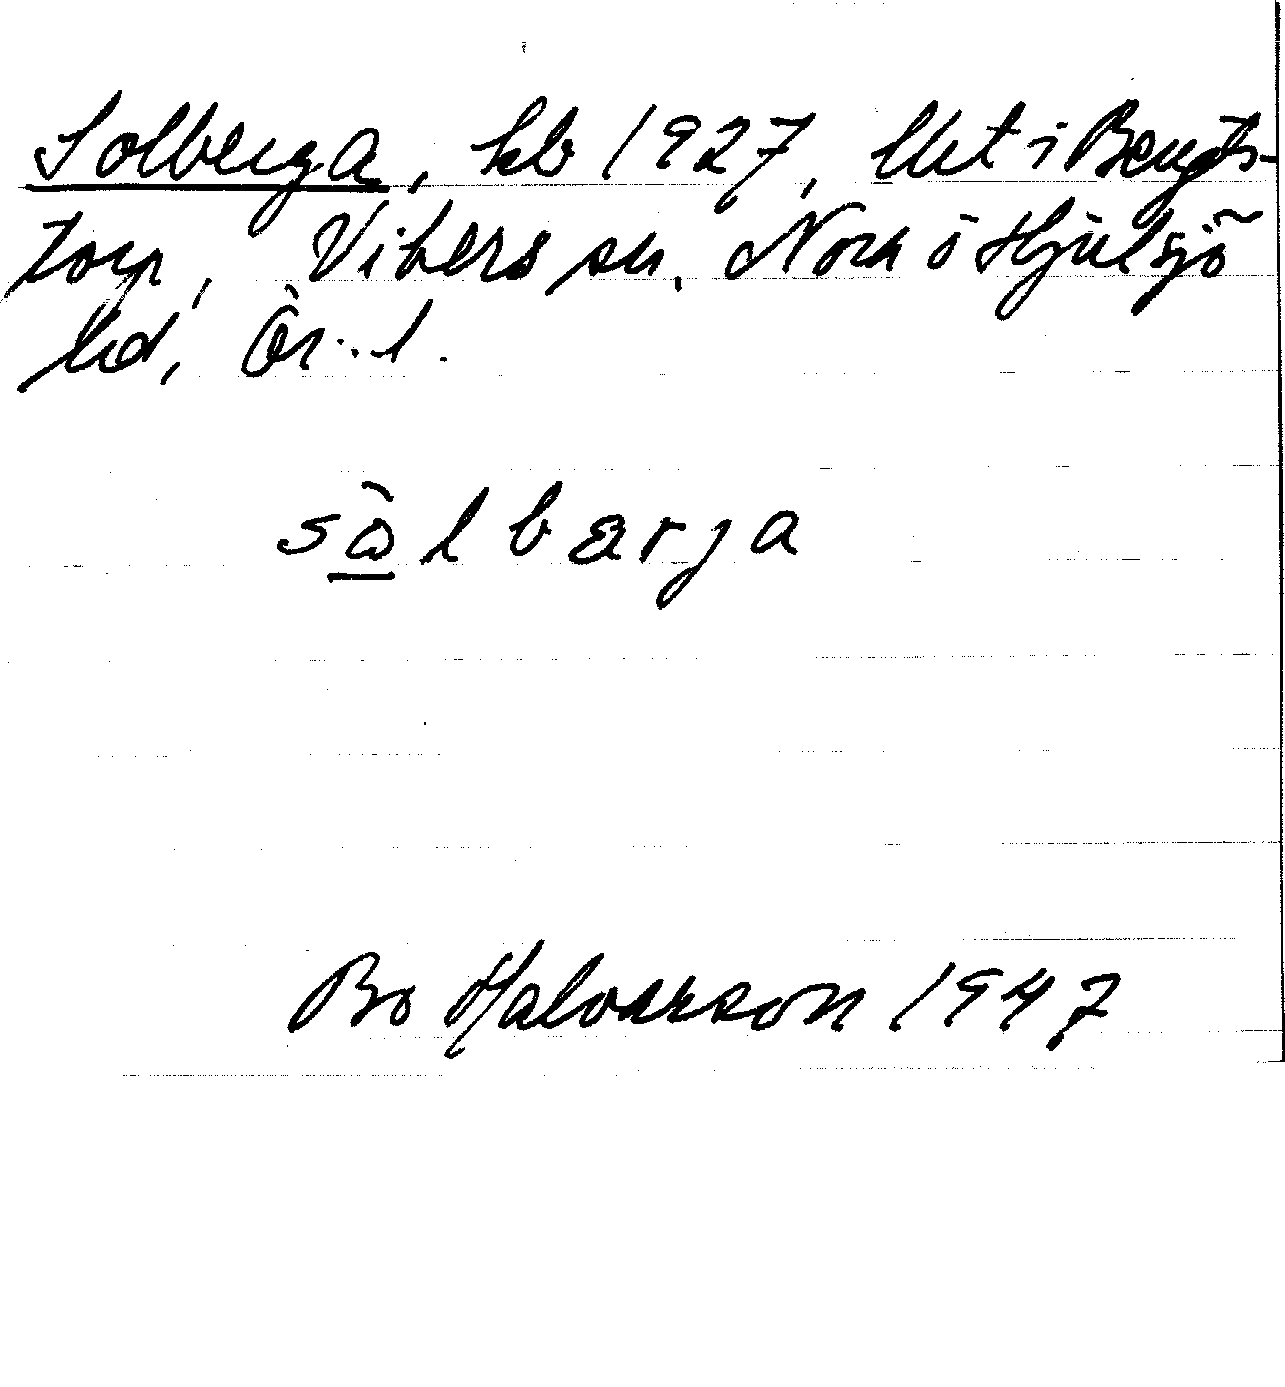 Solberga, kb 1927, lht i Bengts-
torp, Vikers sn, Nora o Hjulsjö
bd, Ör. l.
sơlbærja
Bo Halvarson 1947